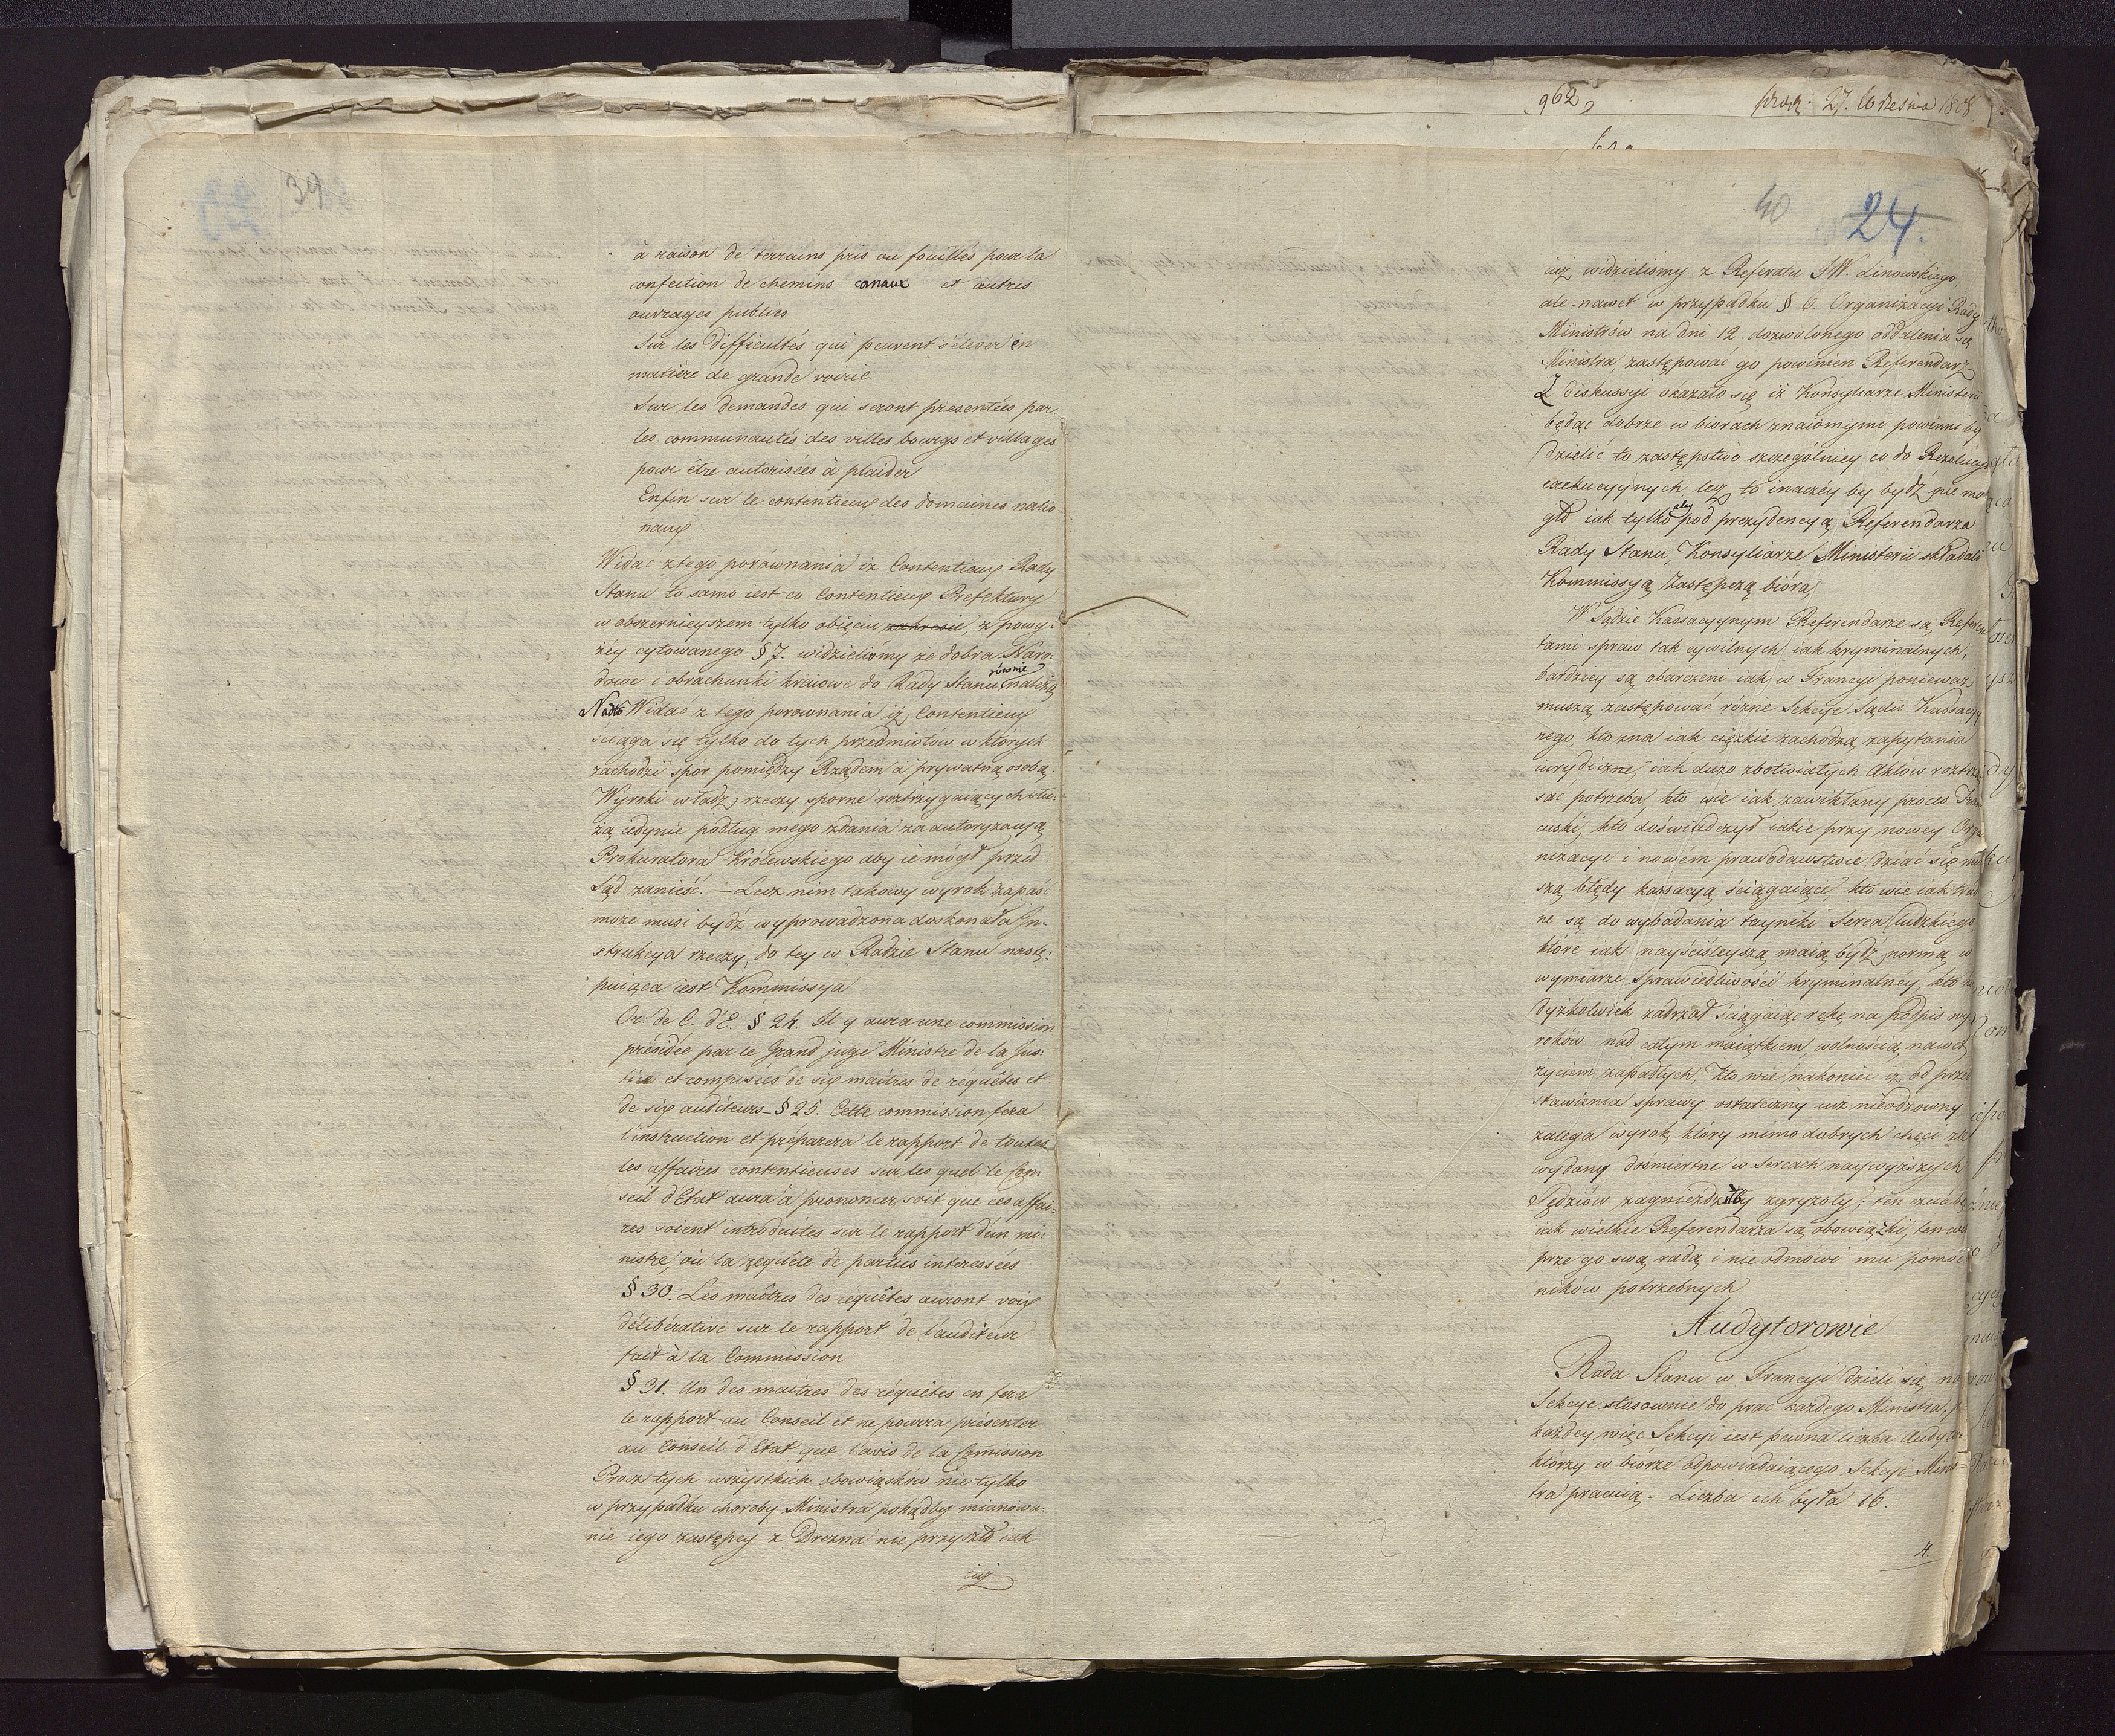 39
à raison de terrains pris ou fouillés pour la
confection de chemins canaux et autres
ouvrages publics
Sur les difficultés qui peuvent s'élever en
matière de grande voirie.
Sur les demandes qui seront presentées par
les communautés des villes bourgs et villages
pour être autorisées à plaider
Enfin sur le contentieux des domaines natio
naux
Widać z tego porównania iż Contentieux Rady
Stanu to samo iest co Contentieux Prefektury
w obszernieyszem tylko obięciu zakresie, z powy:
żéy cytowanego § 7. widzieliśmy że dobra Naro:
dowe i obrachunki kraiowe do Rady Stanu równie należą
Nadto Widac z tego porownania iż Contentieux
sciąga się tylko do tych przedmiotów w których
zachodzi spór pomiędzy Rządem a prywatną osobą.
Wyroki władz rzeczy sporne roztrzygaiących słu:
żą iedynie podług mego zdania za autoryzacyą
Prokuratora Królewskiego aby ie mógł przed
Sąd zanieść. — Lecz nim takowy wyrok zapaść
może musi bydź wyprowadzona doskonała In-
strukcya rzeczy, do tey w Radzie Stanu nastę:
puiąca iest Kommissya
Or: de C. d'E. § 24. Il y aura une commission
présidée par le Grand juge Ministre de la Jus:
tice et composées de six maitres de réquêtes et
de six auditeurs - § 25. Cette commission fera
l'instruction et préparera le rapport de toutes
les affaires contentieuses sur les quel le Con:
seil d'Etat aura à prononcer, soit que ces affai:
res soient introduites sur le rapport d'un mi:
nistre, ou la requête de parties interessées
§ 30. Les maîtres des réquêtes auront voix
délibérative sur le rapport de l'auditeur
fait à la Commission
§ 31. Un des maitres des réquêtes en fera
le rapport au Conseil et ne pourra présenter
au Conseil d'Etat que l'avis de la Comission
Procz tych wszystkich obowiązków nie tylko
w przypadku choroby Ministra pokądby mianowa:
nie iego zastępcy z Drezna nie przyszło iak
iuż
962,
27. Września 1808.
40
24.
iuż, widzielismy z Referatu JW. Linowskiego
ale nawet w przypadku § 6. Organizacyi Rady
Ministrów na dni 12. dozwolonego oddalenia się
Ministra, zastępować go powinien Referendarz
Z diskussyi okazało się iż Konsyliarze Ministerii
będąc dobrze w biorach znaiomymi powinni by
dzielić to zastępstwo szczególniey co do Rezolucyi
exekucyynych lecz to inaczéy by bydź nie mo
gło iak tylko aby pod prezydencyą Referendarza
Rady Stanu, Konsyliarze Ministerii składali
Kommissyą Zastępczą bióra,
W Sądzie Kassacyynym Referendarze są Referen
tami spraw tak cywilnych iak kryminalnych,
bardziey są obarczeni iak w Francyi ponieważ
muszą zastępować różne Sekcye Sądu Kassacyy
nego, kto zna iak ciężkie zachodzą zapytania
iurydiczne, iak dużo zbotwiałych Aktów roztrzą
sać potrzeba, kto wie iak zawikłany proces Fran
cuski, kto doświadczył iakie przy nowey Orga
nizacyi i nowém prawodawstwie dziać się mu
szą błędy kassacyą ściągaiące, kto wie iak trud
ne są do wybadania tayniki Serca ludzkiego
które iak nayściśleyszą maią bydź normą w
wymiarze sprawiedliwości kryminalney, kto
dyżkolwiek zadrżał ściągaiąc rękę na podpis wy
roków nad całym maiątkiem wolnością nawet
życiem zapadłych, kto wie nakoniec iż od prze
stawienia sprawy ostateczny iuż nieodzowny
zalega wyrok, który mimo dobrych chęci źle
wydany dośmiertne w sercach naywyższych
Sędziów zagnieździłby zgryzoty; ten czuie
iak wielkie Referendarza są obowiązki, ten
prze go swą radą i nie odmowi mu pomoc
ników potrzebnych
Audytorowie
Rada Stanu w Francyi dzieli się na
Sekcye stosownie do prac każdego Ministra,
każdey więc Sekcyi iest pewna liczba Audyto
którzy w biórze odpowiadaiącego Sekcyi Minis=
tra pracuią. Liczba ich była 16.
4.